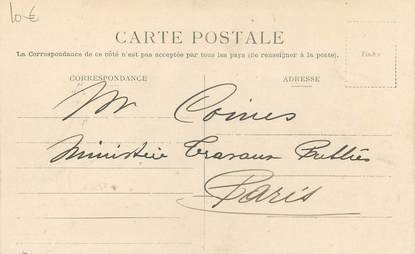 10 €
CARTE POSTALE
La Correspondance de ce côté n'est pas acceptée par tous les pays (Se renseigner à la poste).
Timbre
CORRESPONDANCE
ADRESSE
Mr Coines
Ministère Travaux Publics
Paris